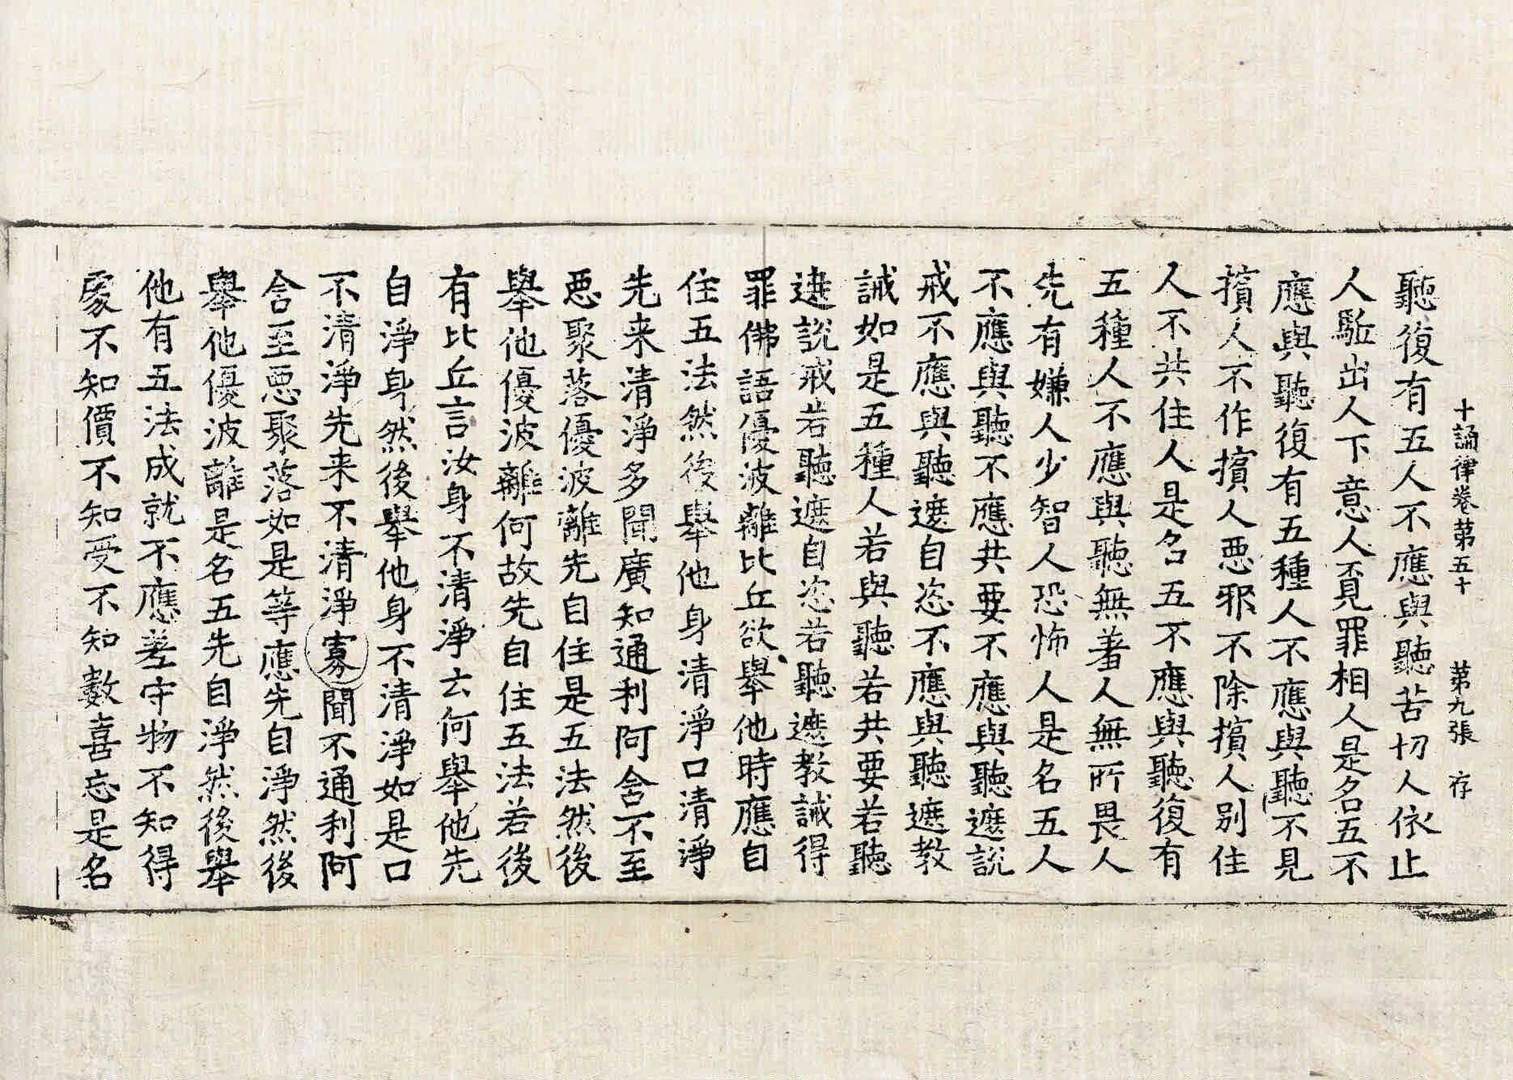 十誦律卷第五十　第九張　存
聽復有五人不應與聽苦切人依止
人駈出人下意人覔罪相人是名五不
應與聽復有五種人不應與聽不見
擯人不作擯人惡邪不除擯人別住
人不共住人是名五不應與聽復有
五種人不應與聽無著人無所畏人
先有嫌人少智人恐怖人是名五人
不應與聽不應共要不應與聽遮說
戒不應與聽遮自恣不應與聽遮教
誡如是五種人若與聽若共要若聽
遮說戒若聽遮自恣若聽遮教誡得
罪佛語優波離比丘欲舉他時應自
住五法然後舉他身清淨口清淨
先来清淨多聞廣知通利阿含不至
惡聚落優波離先自住是五法然後
舉他優波離何故先自住五法若後
有比丘言汝身不清淨云何舉他先
自淨身然後舉他身不清淨如是口
不清淨先来不清淨寡聞不通利阿
含至惡聚落如是等應先自淨然後
舉他優波離是名五先自淨然後舉
他有五法成就不應差守物不知得
處不知價不知受不知數喜忘是名